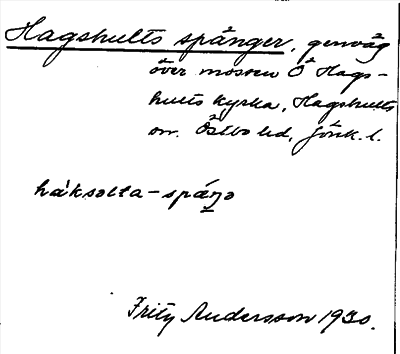 Hagshults spånger, genväg
över mossen Ö Hags-
hults kyrka, Hagshults
sn. Östbo hd, Jönk. l.
håksølta-spáŋə
Fritz Andersson 1930.